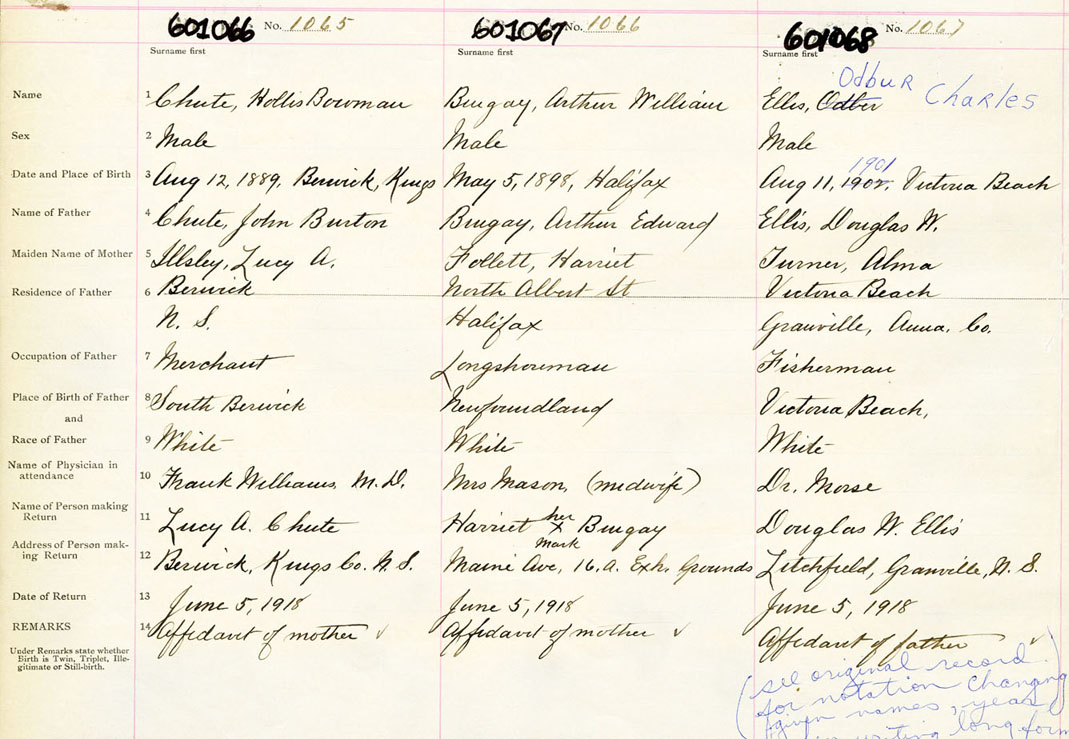 601066 No. 1065 601067 No. 1066 601068 No. 1067
Surname first Surname first Surname first
Odbur Charles
Name 1 Chute, Hollis Bowman Bungay, Arthur William Ellis, Odber
Sex 2 Male Male Male
1901
Date and Place of Birth 3 Aug 12, 1889, Berwick, Kings May 5, 1898, Halifax Aug 11, 1902, Victoria Beach
Name of Father 4 Chute, John Burton Bungay, Arthur Edward Ellis, Douglas W.
Maiden Name of Mother 5 Illsley, Lucy A. Follett, Harriet Turner, Alma
Residence of Father 6 Berwick North Albert St Victoria Beach
N. S. Halifax Granville, Anna. Co.
Occupation of Father 7 Merchant Longshoreman Fisherman
Place of Birth of Father 8 South Berwick Newfoundland Victoria Beach,
and
Race of Father 9 White White White
Name of Physician in
attendance 10 Frank Williams, M.D. Mrs Mason, (midwife) Dr. Morse
Name of Person making
Return 11 Lucy A. Chute Harriet her x mark Bungay Douglas W. Ellis
Address of Person mak-
ing Return 12 Berwick, Kings Co. N. S. Maine Ave, 16. A. Exh. Grounds Litchfield, Granville, N. S.
Date of Return 13 June 5, 1918 June 5, 1918 June 5, 1918
REMARKS 14 Affidavit of mother ✓ Affidavit of mother ✓ Affidavit of father ✓
Under Remarks state whether
Birth is Twin, Triplet, Ille-
gitimate or Still-birth.
(see original record
for notation changing
given names, year
writing long form